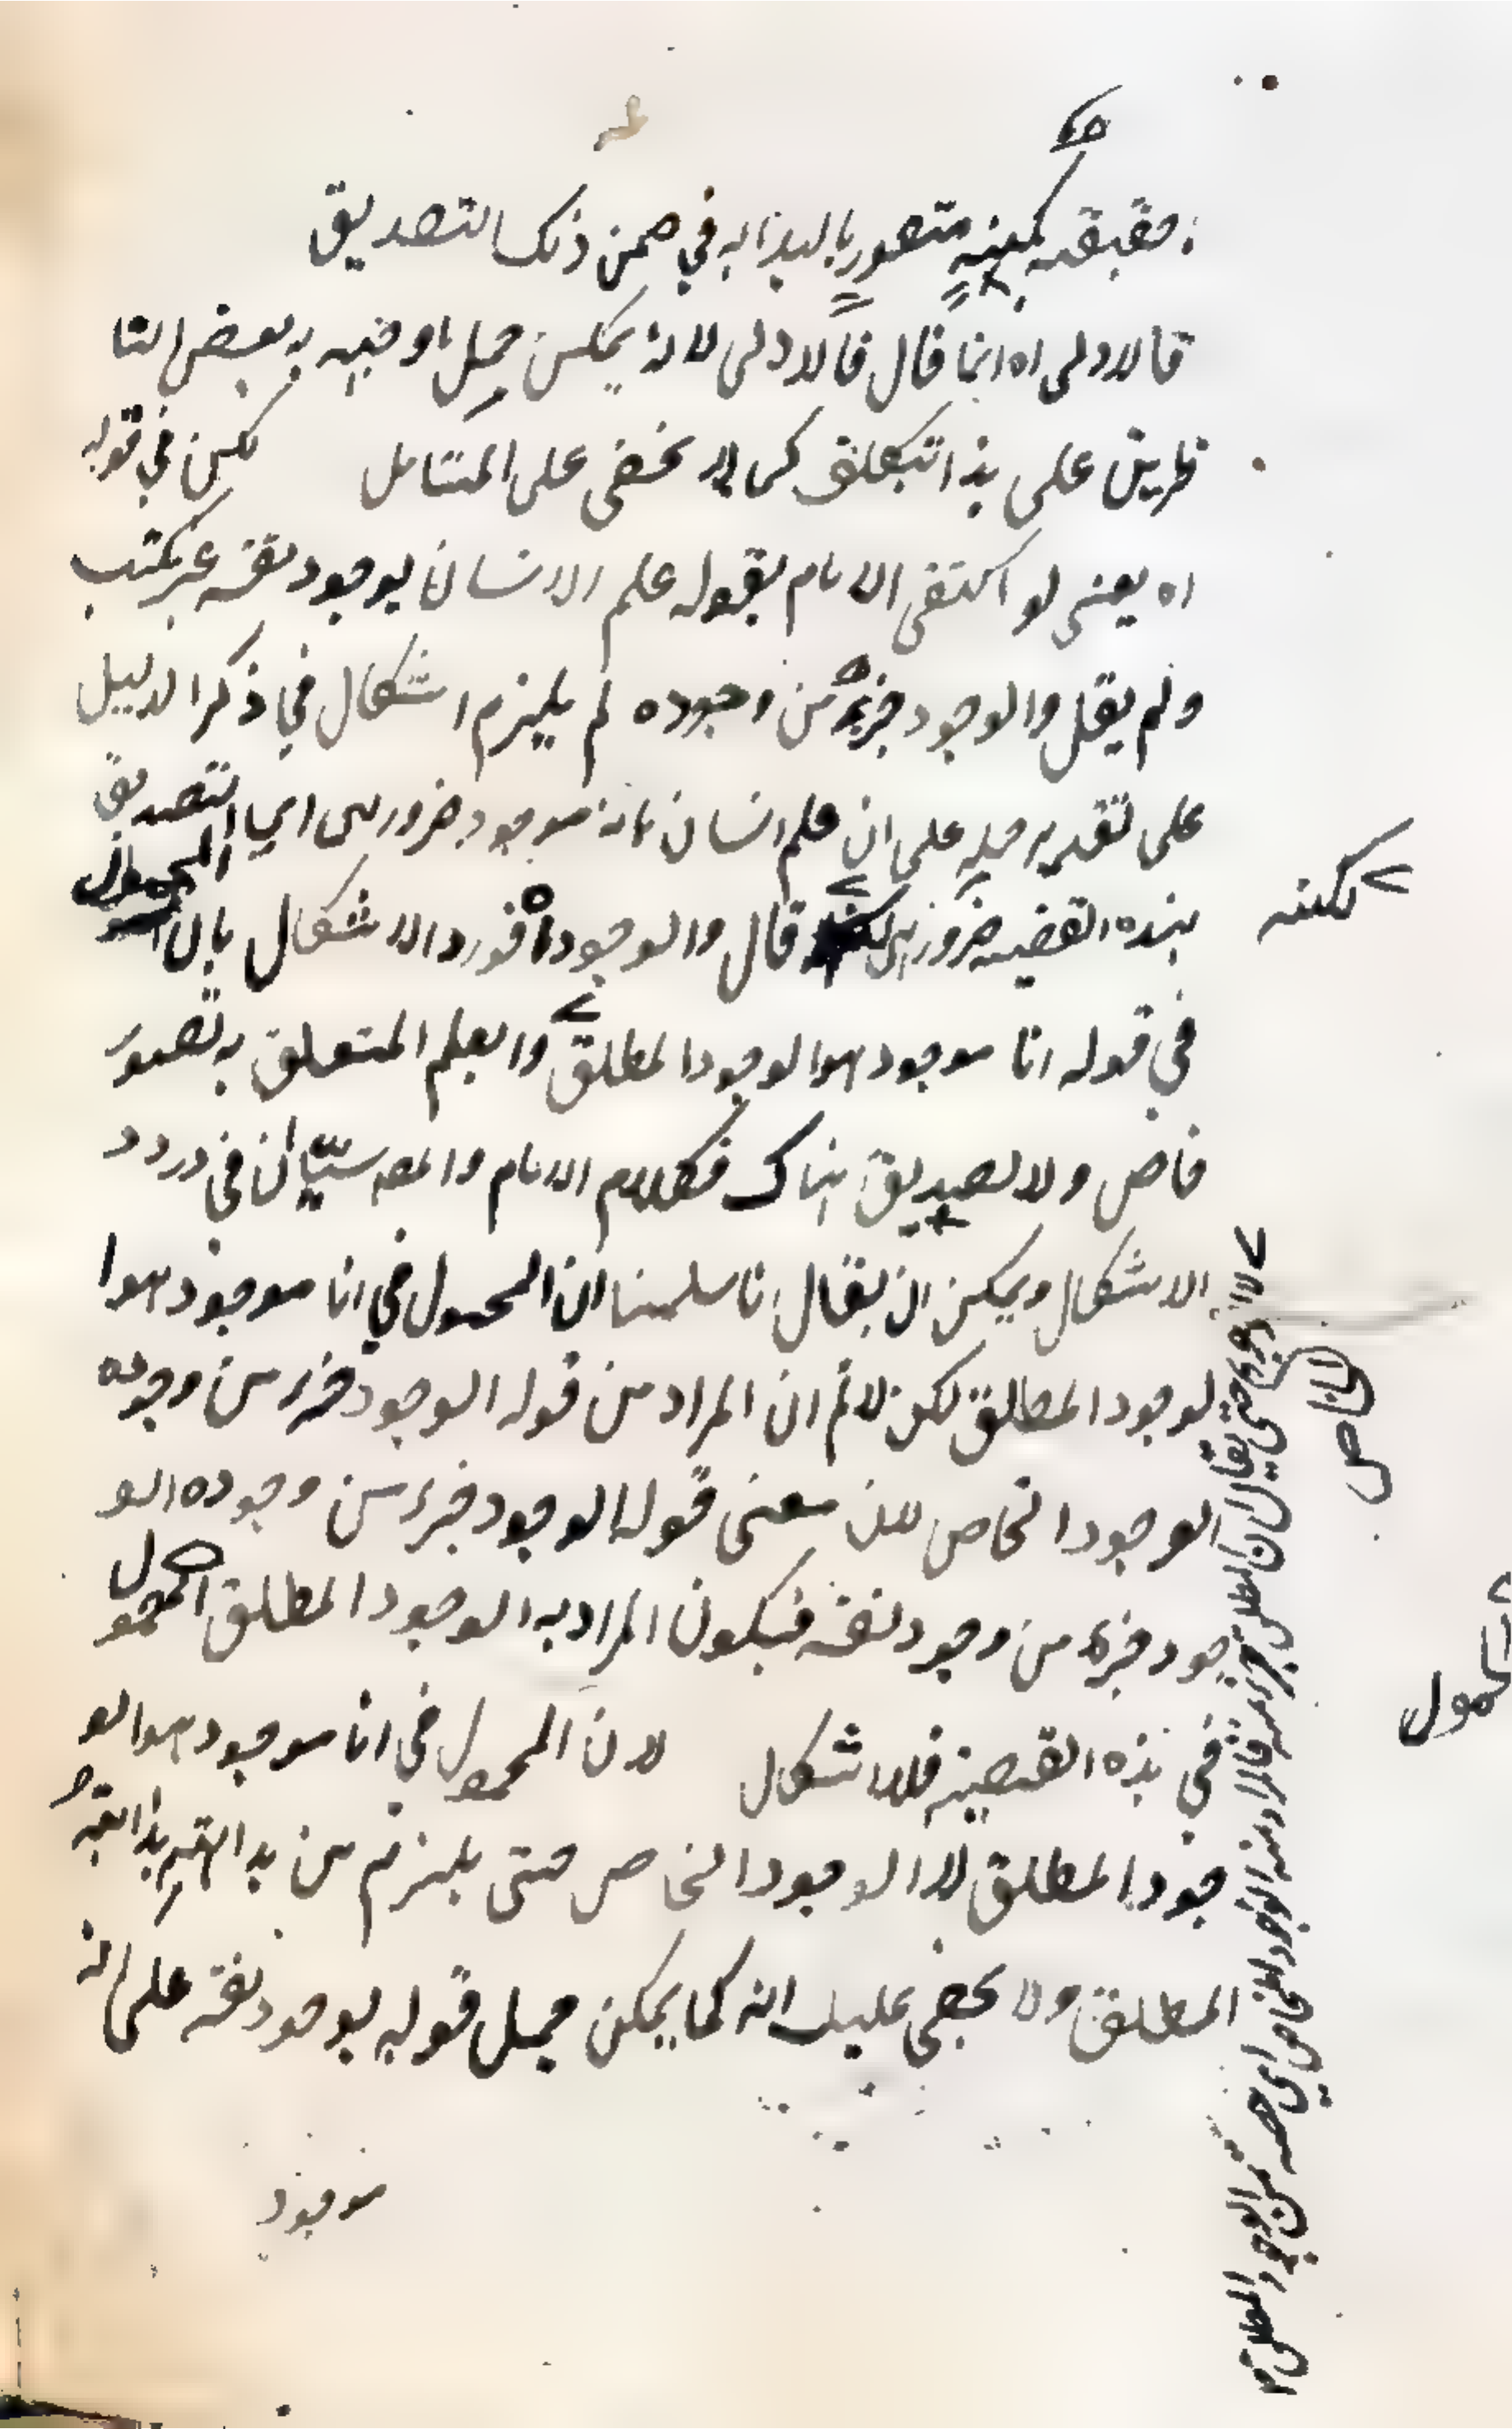 حقيقته بكنهه متصور بالبداهة في ضمن ذلك التصديق
فالاولى اه انما قال فالاولى لانه يمكن حمل ما وجه به بعض النا
ظرين على هذا بتكلف كما لا يخفى على المتامل لكن في قوله
اه يعني لو اكتفى الامام بقوله علم الانسان بوجود نفسه غير مكتسب
ولم يقل والوجود جزء من وجوده لم يلزم اشكال في ذكر الدليل
على تقدير حمله على ان علم انسان بانه موجود ضروري اي التصديق
بهذه القضيه ضروري لكنه قال والوجود اه فورد الاشكال بان المحمول
في قوله انا موجود هو الوجود المطلق والعلم المتعلق به تصور
خاص ولا تصديق هناك فكلام الامام والمص سيّان في ورود
الاشكال ويمكن ان يقال انا سلمنا ان المحمول في انا موجود هو ا
لوجود المطلق لكن لانم ان المراد من قوله الوجود جزء من وجوده
الوجود الخاص لان معنى قوله الوجود جزء من وجوده الو
جود جزء من وجود نفسه فيكون المراد به الوجود المطلق المحمول
في هذه القضية فلا اشكال لان المحمول في انا موجود هو الو
جود المطلق لا الوجود الخاص حتى يلزم من بداهته بداهة
المطلق ولا يخفى عليك انه كما يمكن حمل قوله بوجود نفسه على انه
موجود
لكنه
الخاص
المحمول
حتى يقال ان المطلق جزء منه فالمراد منه الوجود الخاص اي حصه من الوجود المطلق